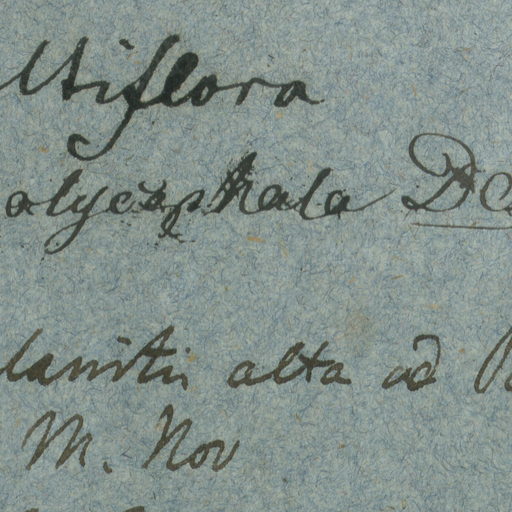 ltiflora
olycephala DC
lanitie alta ad
M. Nov